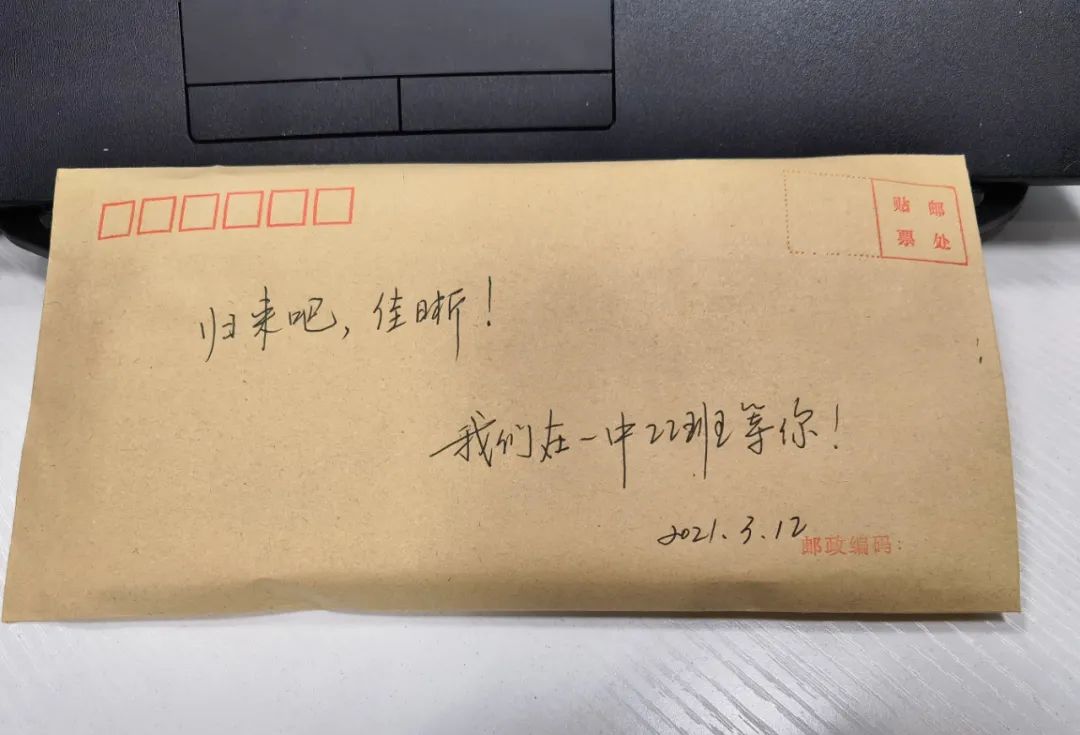 贴邮
票处
归来吧，佳晰！
我们在一中22班等你！
2021.3.12
邮政编码：